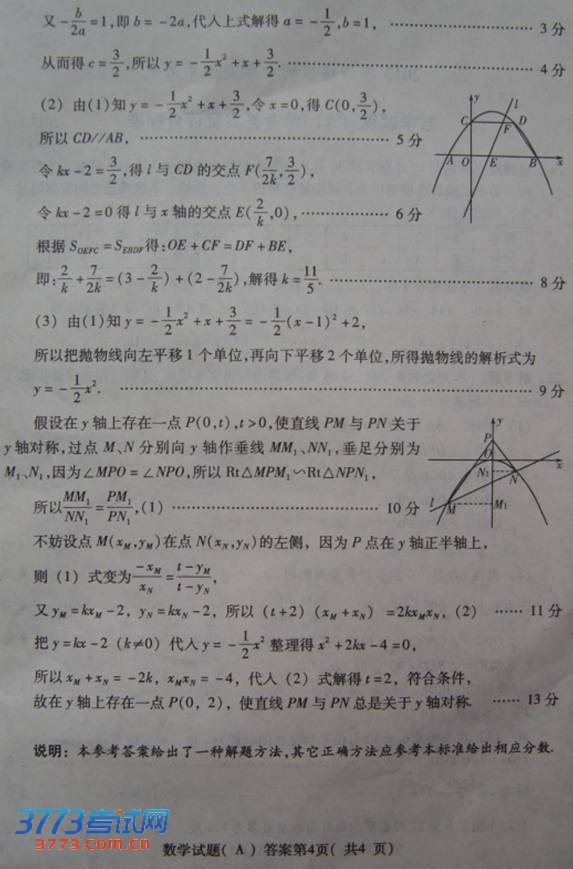 又 $-\frac{b}{2a}=1$,即 $b=-2a$,代入上式解得 $a=-\frac{1}{2}$,$b=1$, …………………… 3 分
从而得 $c=\frac{3}{2}$,所以 $y=-\frac{1}{2}x^2+x+\frac{3}{2}$. …………………… 4 分
(2) 由(1)知 $y=-\frac{1}{2}x^2+x+\frac{3}{2}$,令 $x=0$,得 $C(0,\frac{3}{2})$,
所以 CD//AB, …………………… 5 分
令 $kx-2=\frac{3}{2}$,得 l 与 CD 的交点 $F(\frac{7}{2k},\frac{3}{2})$,
令 $kx-2=0$ 得 l 与 x 轴的交点 $E(\frac{2}{k},0)$, …………… 6 分
根据 $S_{OEFC}=S_{EBDF}$得:OE + CF = DF + BE,
即:$\frac{2}{k}+\frac{7}{2k}=(3-\frac{2}{k})+(2-\frac{7}{2k})$,解得 $k=\frac{11}{5}$. …………………… 8 分
y
l
C
F
D
A
O
E
B
x
(3) 由(1)知 $y=-\frac{1}{2}x^2+x+\frac{3}{2}=-\frac{1}{2}(x-1)^2+2$,
所以把抛物线向左平移 1 个单位,再向下平移 2 个单位,所得抛物线的解析式为
$y=-\frac{1}{2}x^2$. …………………… 9 分
假设在 y 轴上存在一点 P(0,t),t>0,使直线 PM 与 PN 关于
y 轴对称,过点 M、N 分别向 y 轴作垂线 $MM_1$、$NN_1$,垂足分别为
$M_1$、$N_1$,因为∠MPO = ∠NPO,所以 Rt△$MPM_1$∽Rt△$NPN_1$,
所以$\frac{MM_1}{NN_1}=\frac{PM_1}{PN_1}$,(1) …………………… 10 分
y
P
O
x
$N_1$
N
l
M
$M_1$
不妨设点 $M(x_M,y_M)$在点 $N(x_N,y_N)$的左侧, 因为 P 点在 y 轴正半轴上,
则 (1) 式变为$\frac{-x_M}{x_N}=\frac{t-y_M}{t-y_N}$,
又 $y_M=kx_M-2$, $y_N=kx_N-2$, 所以 $(t+2)(x_M+x_N)=2kx_Mx_N$, (2) …… 11 分
把 $y=kx-2$ (k≠0) 代入 $y=-\frac{1}{2}x^2$ 整理得 $x^2+2kx-4=0$,
所以 $x_M+x_N=-2k$, $x_Mx_N=-4$, 代入 (2) 式解得 t = 2, 符合条件,
故在 y 轴上存在一点 P(0, 2), 使直线 PM 与 PN 总是关于 y 轴对称. …… 13 分
说明: 本参考答案给出了一种解题方法,其它正确方法应参考本标准给出相应分数.
3773考试网
3773.com.cn
数学试题( A ) 答案第4页( 共4 页)